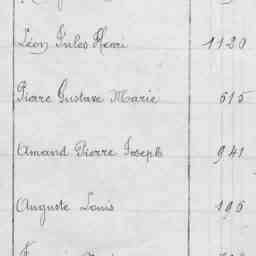 Léon Jules Henri 1120
Pierre Gustave Marie 615
Amand Pierre Joseph 941
Auguste Louis 196